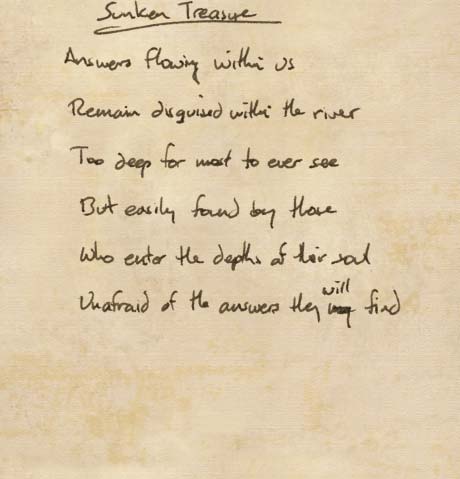 Sunken Treasure
Answers flowing within us
Remain disguised within the river
Too deep for most to ever see
But easily found by those
Who enter the depths of their soul
will
Unafraid of the answers they may find